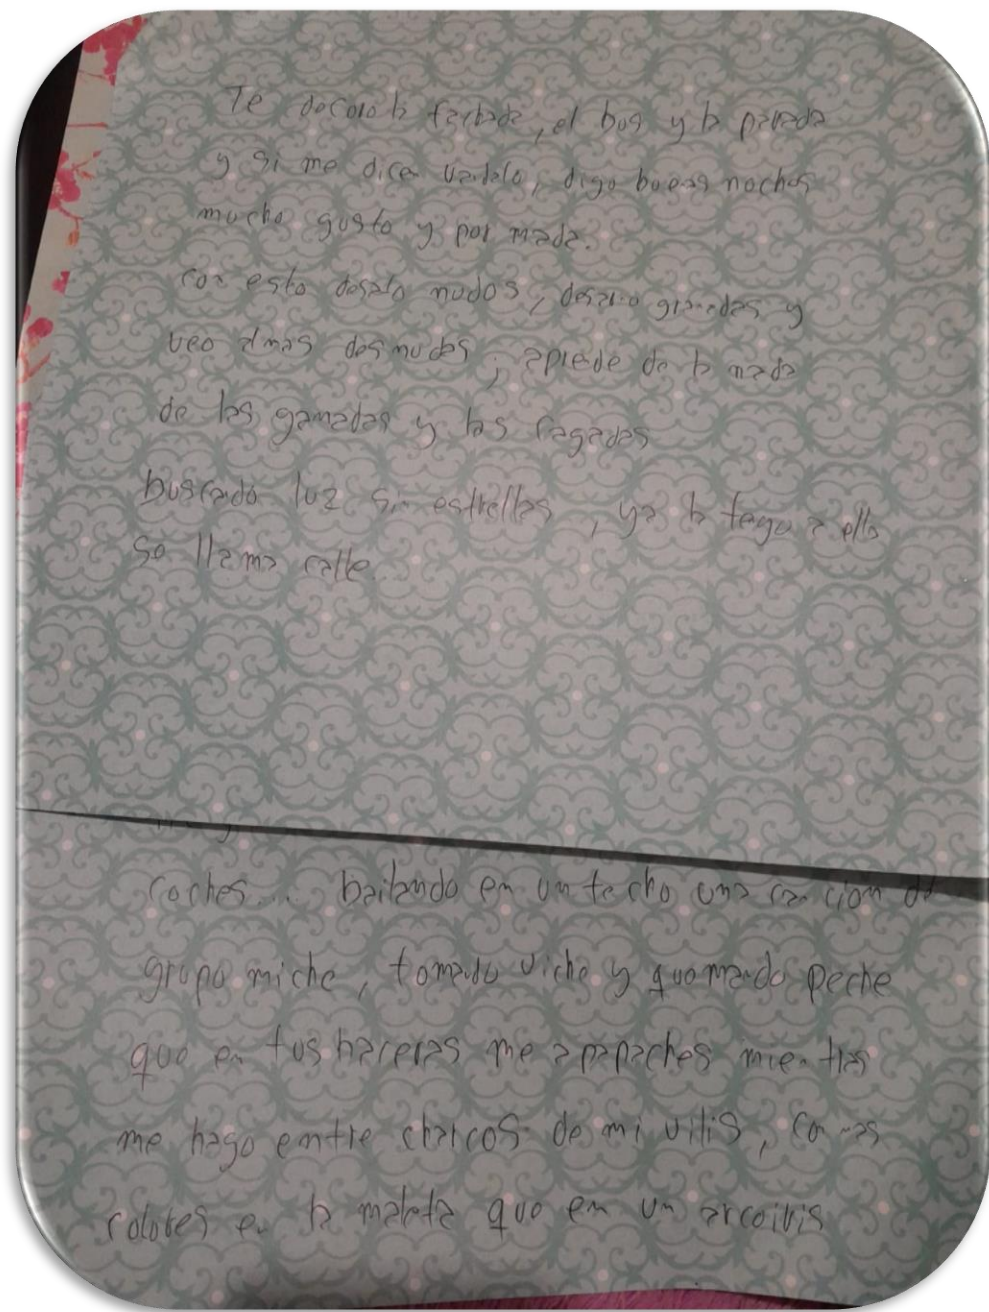 Te decoro la fachada, el bus y la parada
y si me dicen vandalo, digo buenas noches
mucho gusto y por nada.
con esto desato nudos, desarmo granadas y
veo almas desnudas; aprende de la nada
de las ganadas y las cagadas
buscando luz sin estrellas, ya la tengo a ella
se llama calle.
coches... bailando en un techo una cancion de
grupo niche, tomando viche y quemando peche
que en tus me apapaches mientras
me hago entre charcos de mi vitis, con mas
colores en la maleta que en un arcoiris